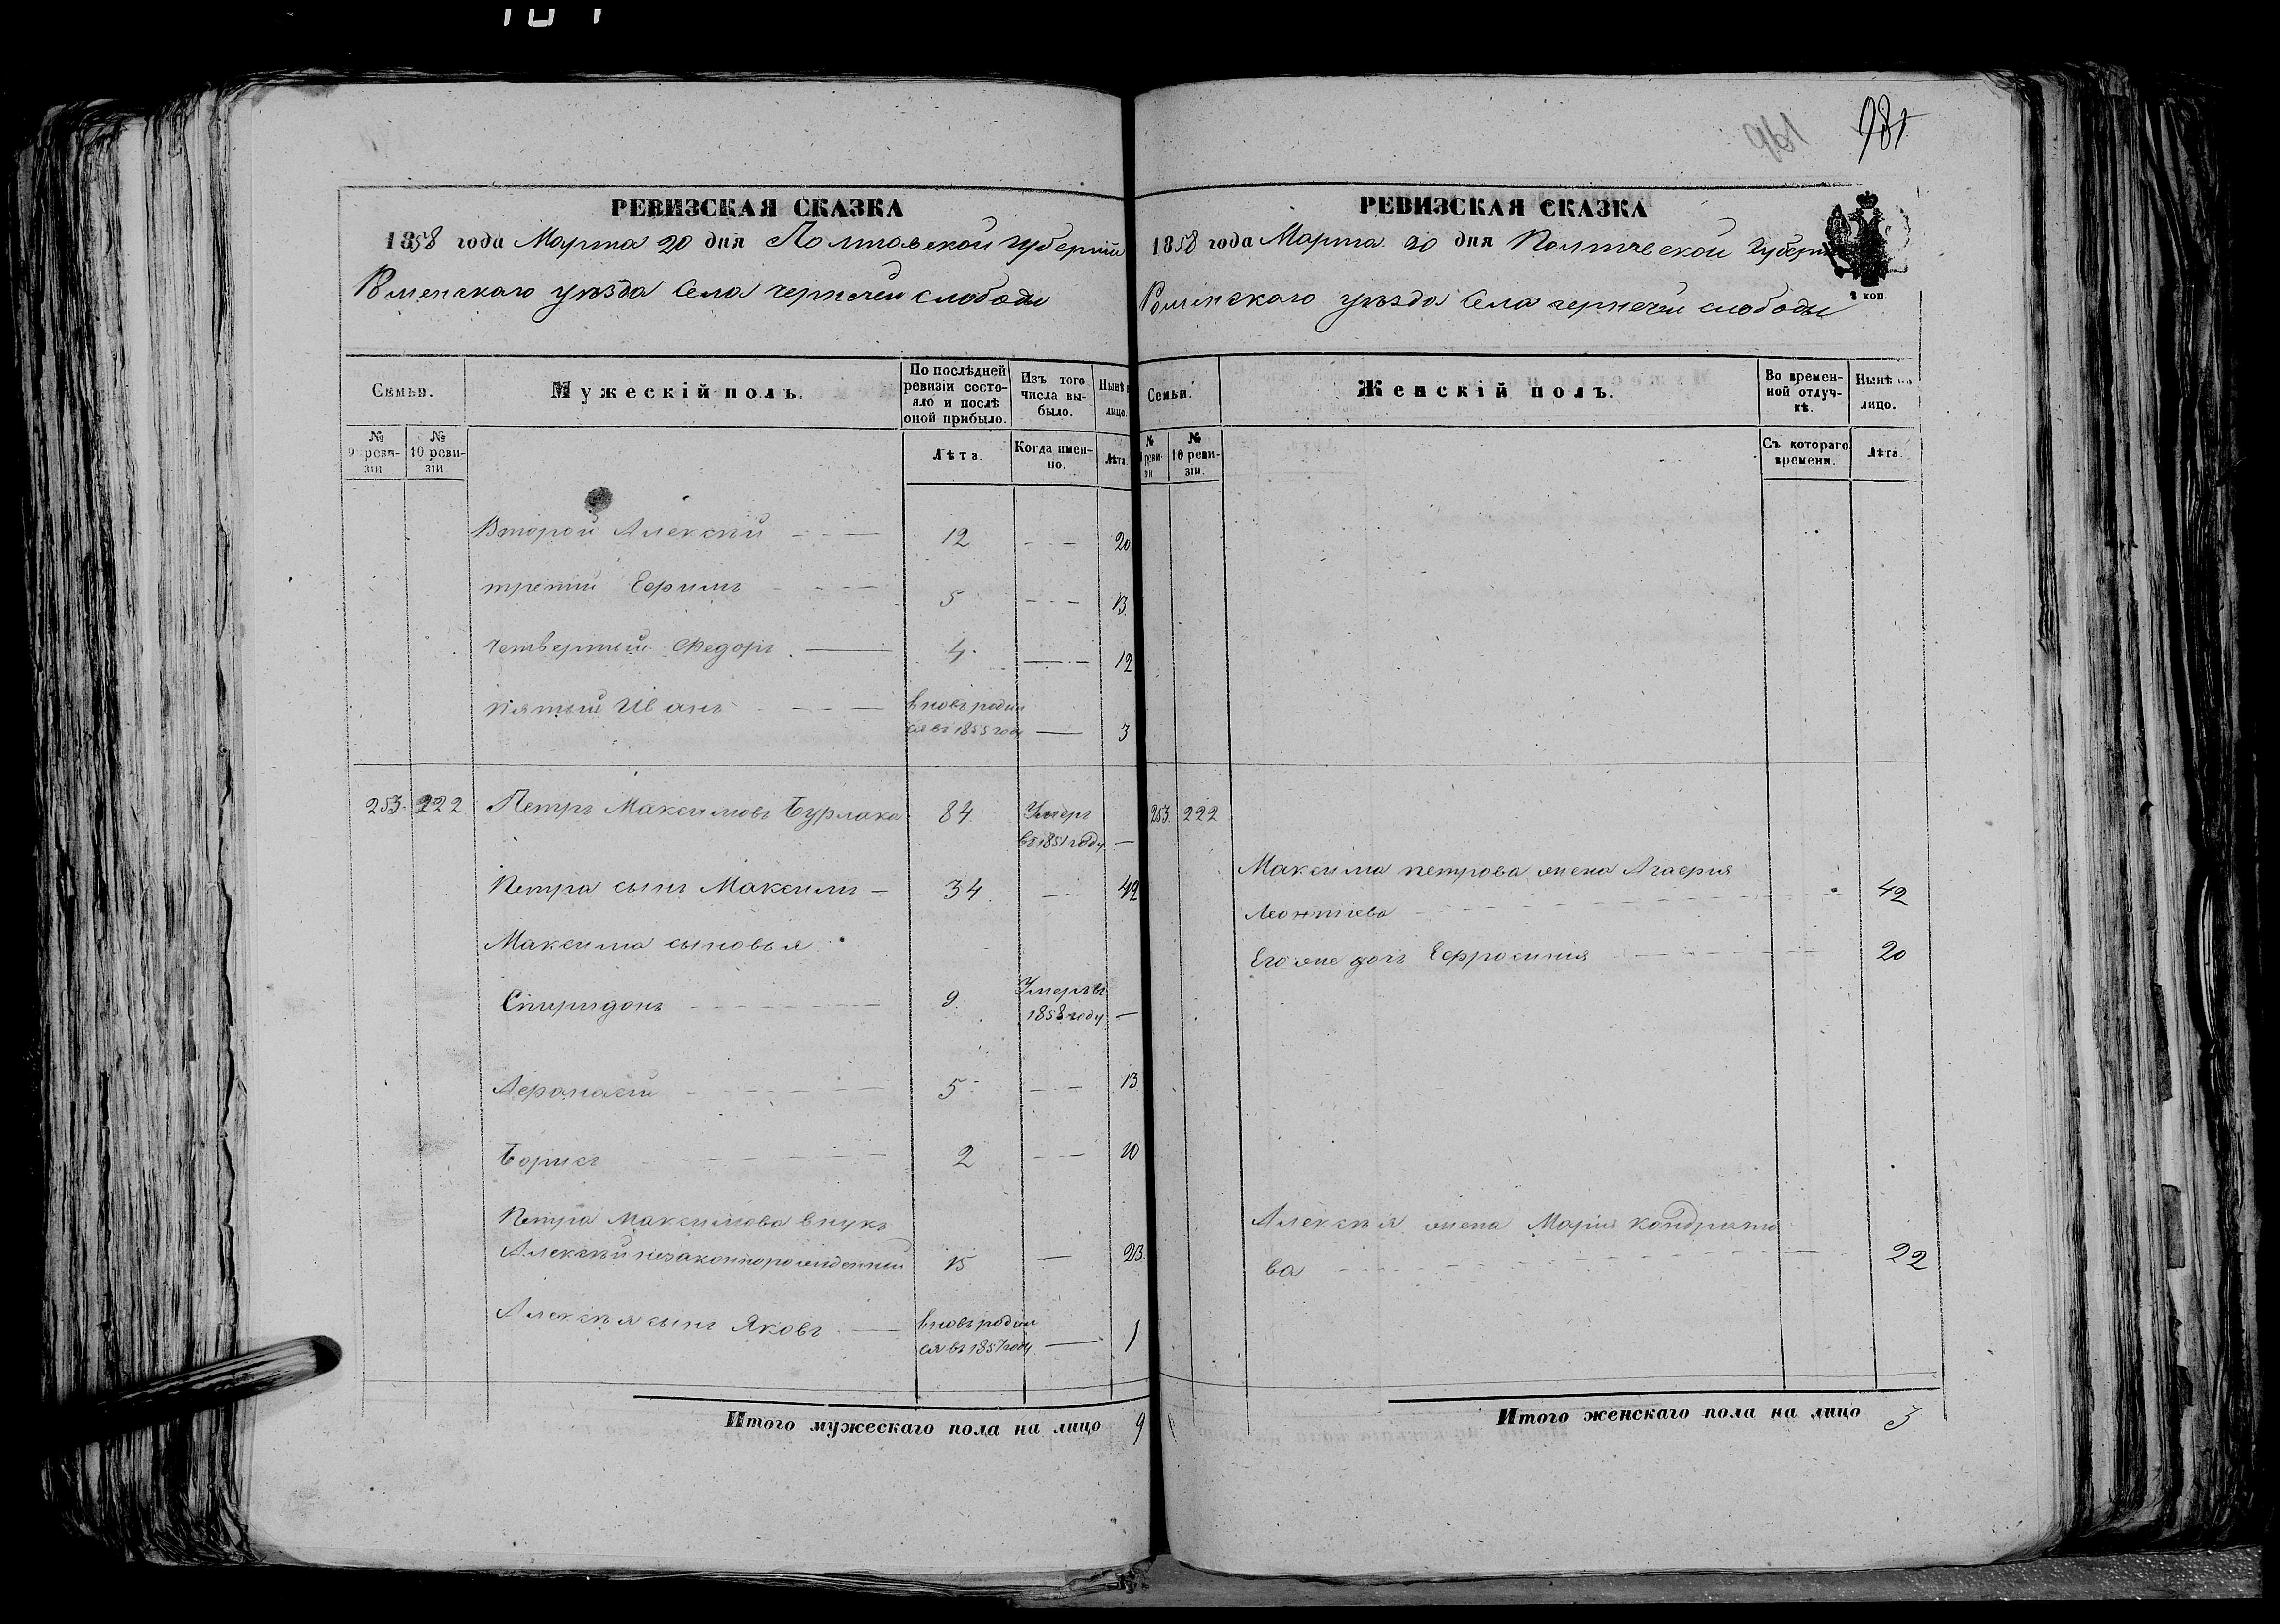 961 981
РЕВИЗСКАЯ СКАЗКА
1858 года Марта 20 дня Полтавской губерніи
Роменскаго уѣзда Села чернечей слободы
Семьи.
Мужескій полъ.
По послѣдней ревизіи состояло и послѣ оной прибыло.
Изъ того числа выбыло.
Нынѣ на лицо.
№ 9 ревизіи
№ 10 ревизіи
Лѣта.
Когда именно.
Лѣта.
Второй Алексѣй 12 20
третий Ефимъ 5 13
Четвертый Федоръ 4 12
пятый Иванъ вновь родил
ся въ 1855 году 3
253. 222. Петръ Максимовъ Бурлака 84 Умеръ
въ 1851 году —
Петра сынъ Максимъ — 34. 42
Максима сыновья
Спиридонъ 9. Умеръ въ
1858 году —
Афанасий 5 13
Борисъ 2 10
Петра Максимова внукъ
Алексѣй незаконнорожденный 15 — 23
Алексѣя сынъ Яковъ вновь родил
ся въ 1857 году 1
Итого мужескаго пола на лицо 9
РЕВИЗСКАЯ СКАЗКА
1858 года Марта 20 дня Полтавской Губерніи
Роменскаго уѣзда Села чернечей слободы
2 коп.
Семьи.
Женскій полъ.
Во временной отлучкѣ.
Нынѣ на лицо.
№ 9 ревизіи
№ 10 ревизіи.
Съ котораго времени.
Лѣта.
253. 222
Максима петрова жена Агафия
Леонтиева 42
Его же дочь Ефросиния 20
Алексѣя жена Мария Кондрато
ва 22
Итого женскаго пола на лицо 3